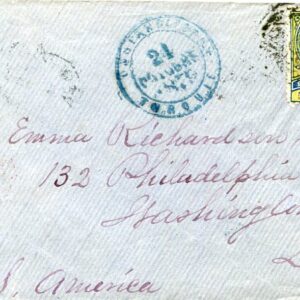 21
Emma Richardson
132 Philadelphia
Washington
S. America